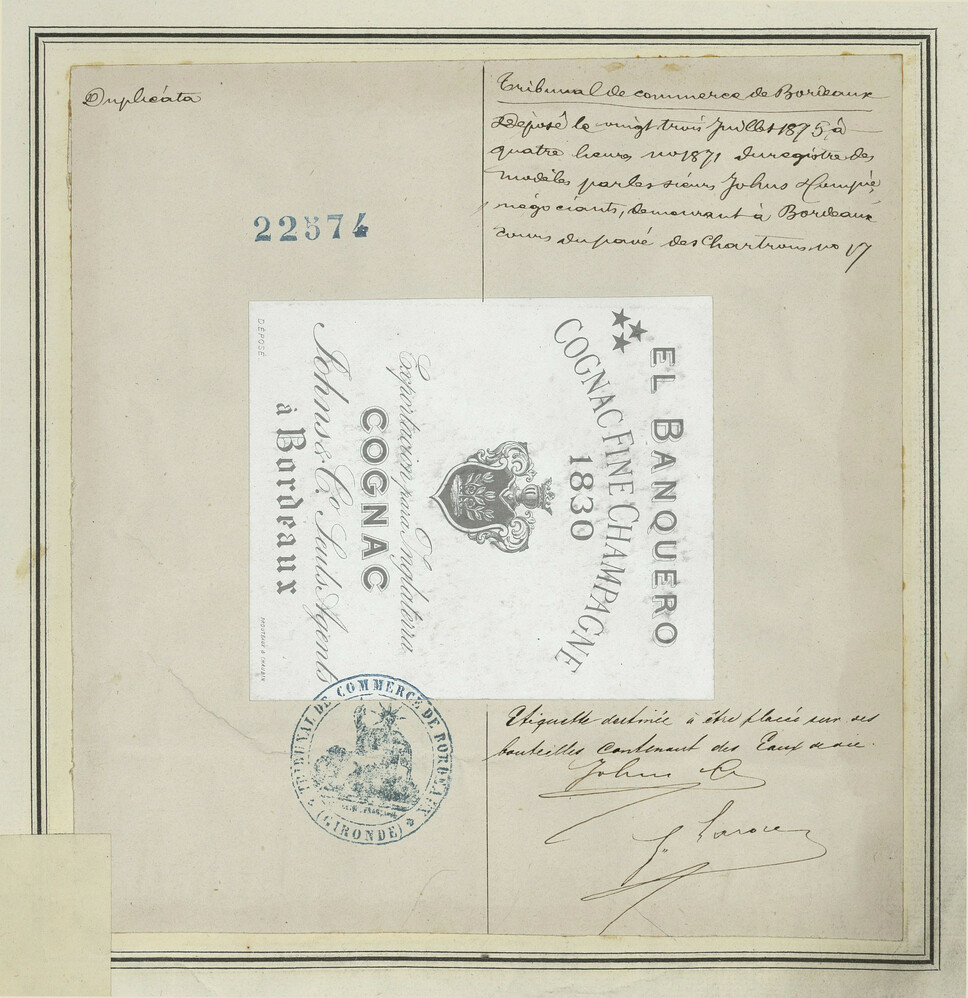 Duplicata
22574
Tribunal de commerce de Bordeaux
Déposé le vingt trois Juillet 1875, à
quatre heures no 1871 du registre des
modèles par les sieurs Johns & Compie,
négociants, demeurant à Bordeaux
cours du pavé des Chartrons no 17
EL BANQUERO
COGNAC FINE CHAMPAGNE
1830
Exportacion para Inglaterra
COGNAC
Johns & Co Seuls Agents
à Bordeaux
DÉPOSÉ
TRIBUNAL DE COMMERCE DE BORDEAUX
(GIRONDE)
Etiquette destinée à être placée sur des
bouteilles contenant des Eaux de vie.
Johns Co